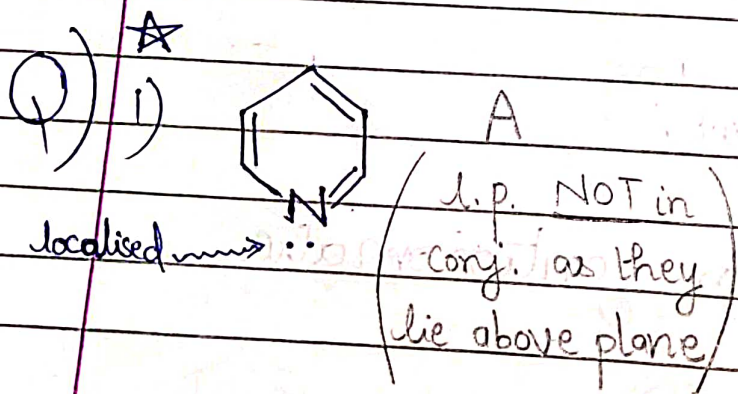 Q) 1)
A
N
localised
(l.p. NOT in
conj. as they
lie above plane)